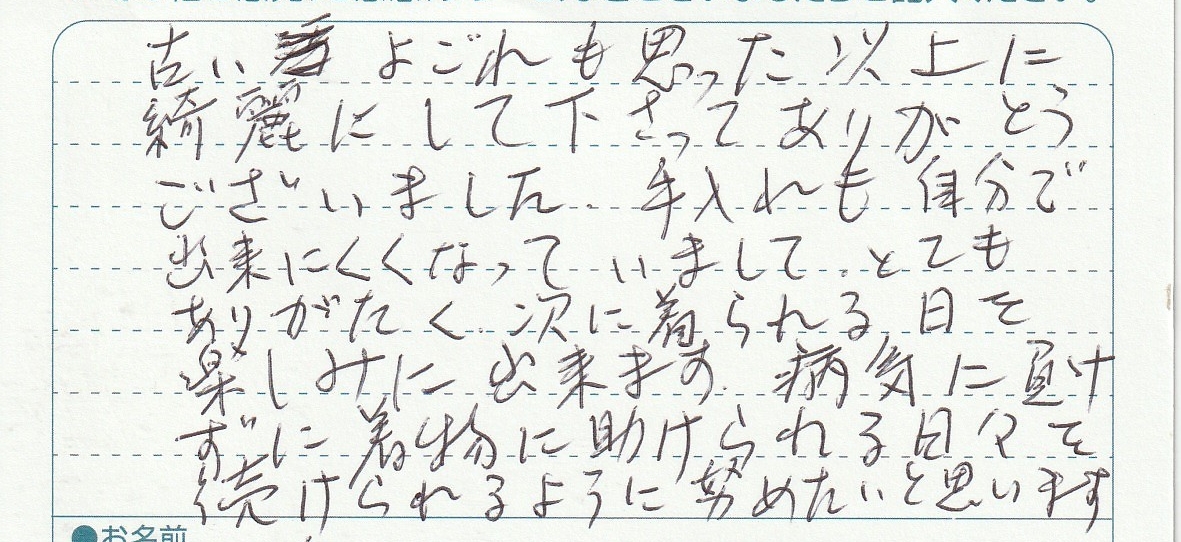 古い よごれも思った以上に
綺麗にして下さってありがとう
ございました. 手入れも自分で
出来にくくなっていまして.とても
ありがたく.次に着られる日を
楽しみに出来ます.病気に負け
ずに着物に助けられる日々を
続けられるように努めたいと思います
●お名前